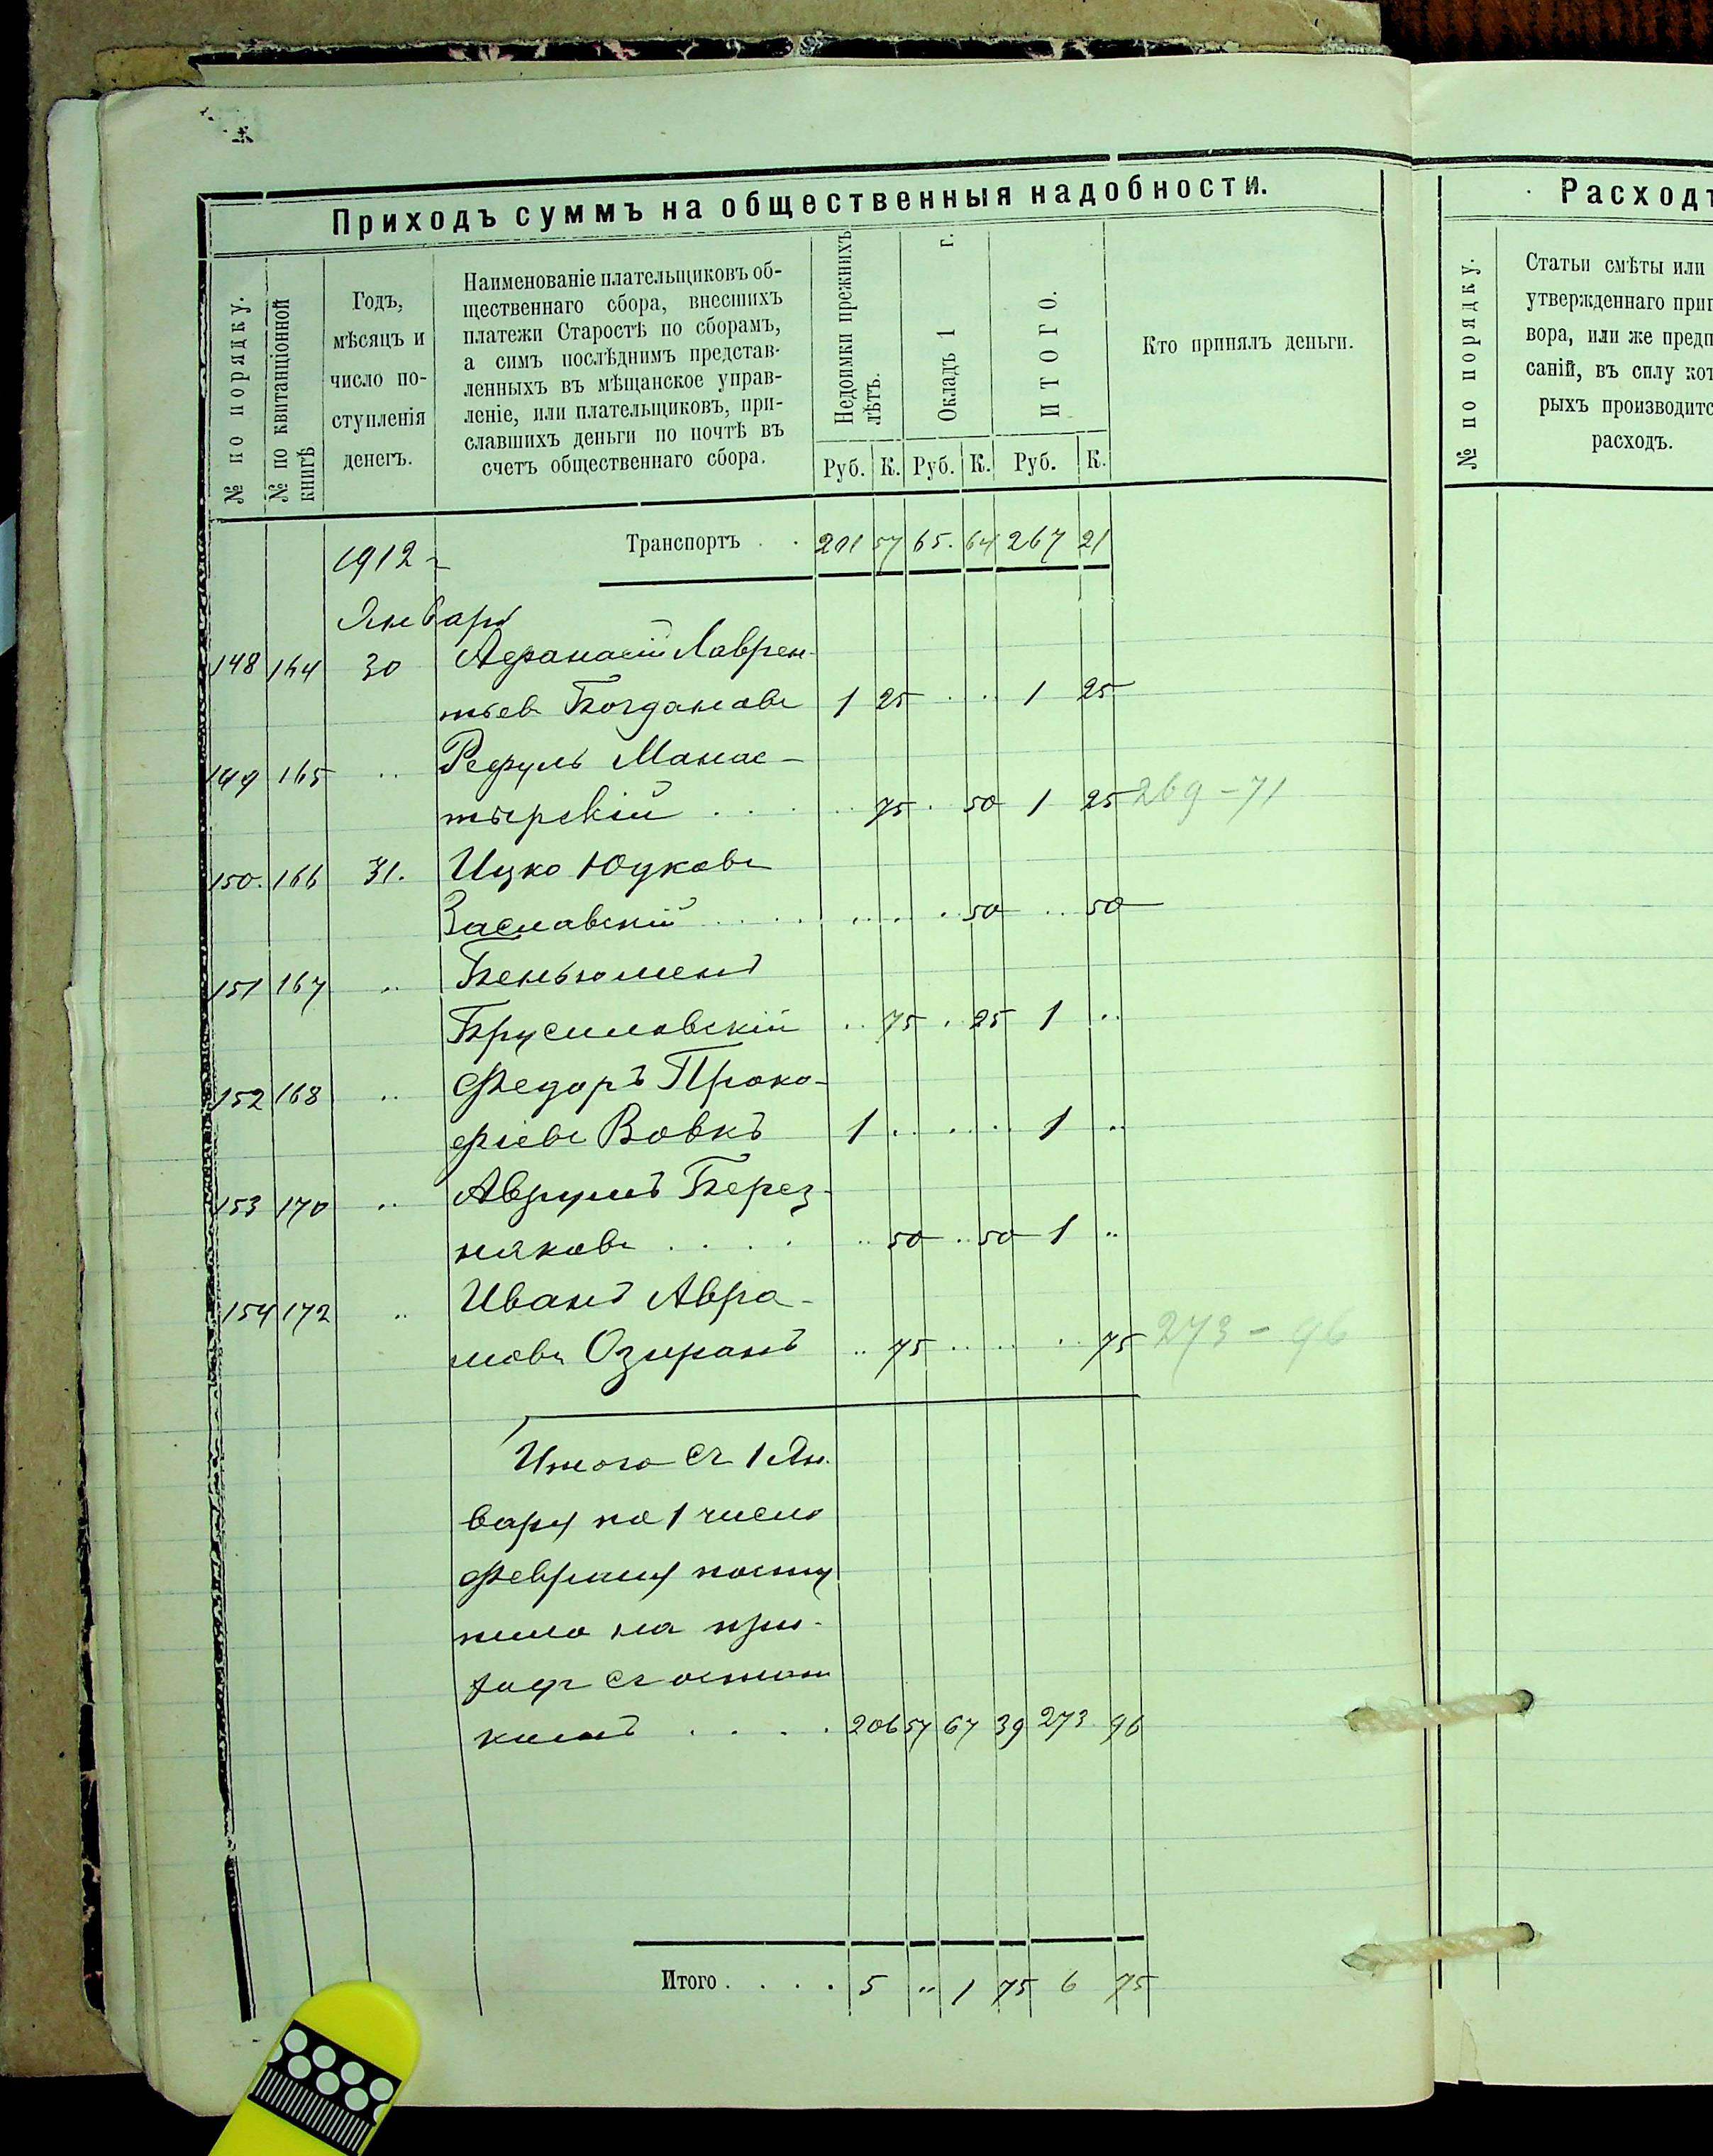 Приходъ суммъ на общественныя надобности.
№ по порядку.
№ по квитанціонной книгѣ
Годъ, мѣсяцъ и число поступленія денегъ.
Наименованіе плательщиковъ об-
щественнаго сбора, внесшихъ
платежи Старостѣ по сборамъ,
а симъ послѣднимъ представ-
ленныхъ въ мѣщанское управ-
леніе, или плательщиковъ, при-
славшихъ деньги по почтѣ въ
счетъ общественнаго сбора.
Недоимки прежнихъ лѣтъ.
Окладъ 1 г.
ИТОГО.
Кто принялъ деньги.
Руб. К. Руб. К. Руб. К.
1912 Транспортъ . . 201 57 65. 64 267 21
Января
148 164 30 Афанасій Лаврен-
тьев Богдановъ 1 25 . . . 1 25
149 165 .. Рефуль Манас-
тырскій . . . 75 . 50 1 25 269-71
150. 166 31. Ицко Юдковъ
Заславскій . . . . 50 .. 50
151 167 .. Беньюменъ
Брусиловскій .. 75 . 25 1 ..
152 168 .. Федоръ Проко-
фіевъ Вовкъ 1 .. . . . 1 ..
153 170 .. Аврумъ Берез-
няковъ . . . . .. 50 .. 50 1 ..
154 172 .. Иванъ Авра-
мовъ Озиранъ .. 75 .. . . . 75 273-96
Итого съ 1 Ян-
варя по 1 число
февраля посту
пило на при-
ходъ съ остат
комъ . . . . 206 57 67 39 273 96
Итого . . . . 5 .. 1 75 6 75
Расходъ
№ по порядку.
Статьи смѣты или
утвержденнаго приг
вора, или же предп
саній, въ силу кот
рыхъ производитс
расходъ.